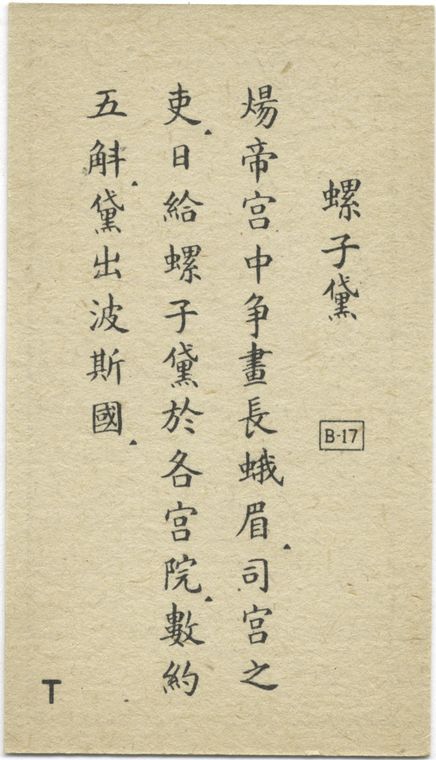 螺子黛
B-17
煬帝宫中争畫長蛾眉▲司宫之
吏▲日給螺子黛於各宫院▲數約
五斛▲黛出波斯國▲
T